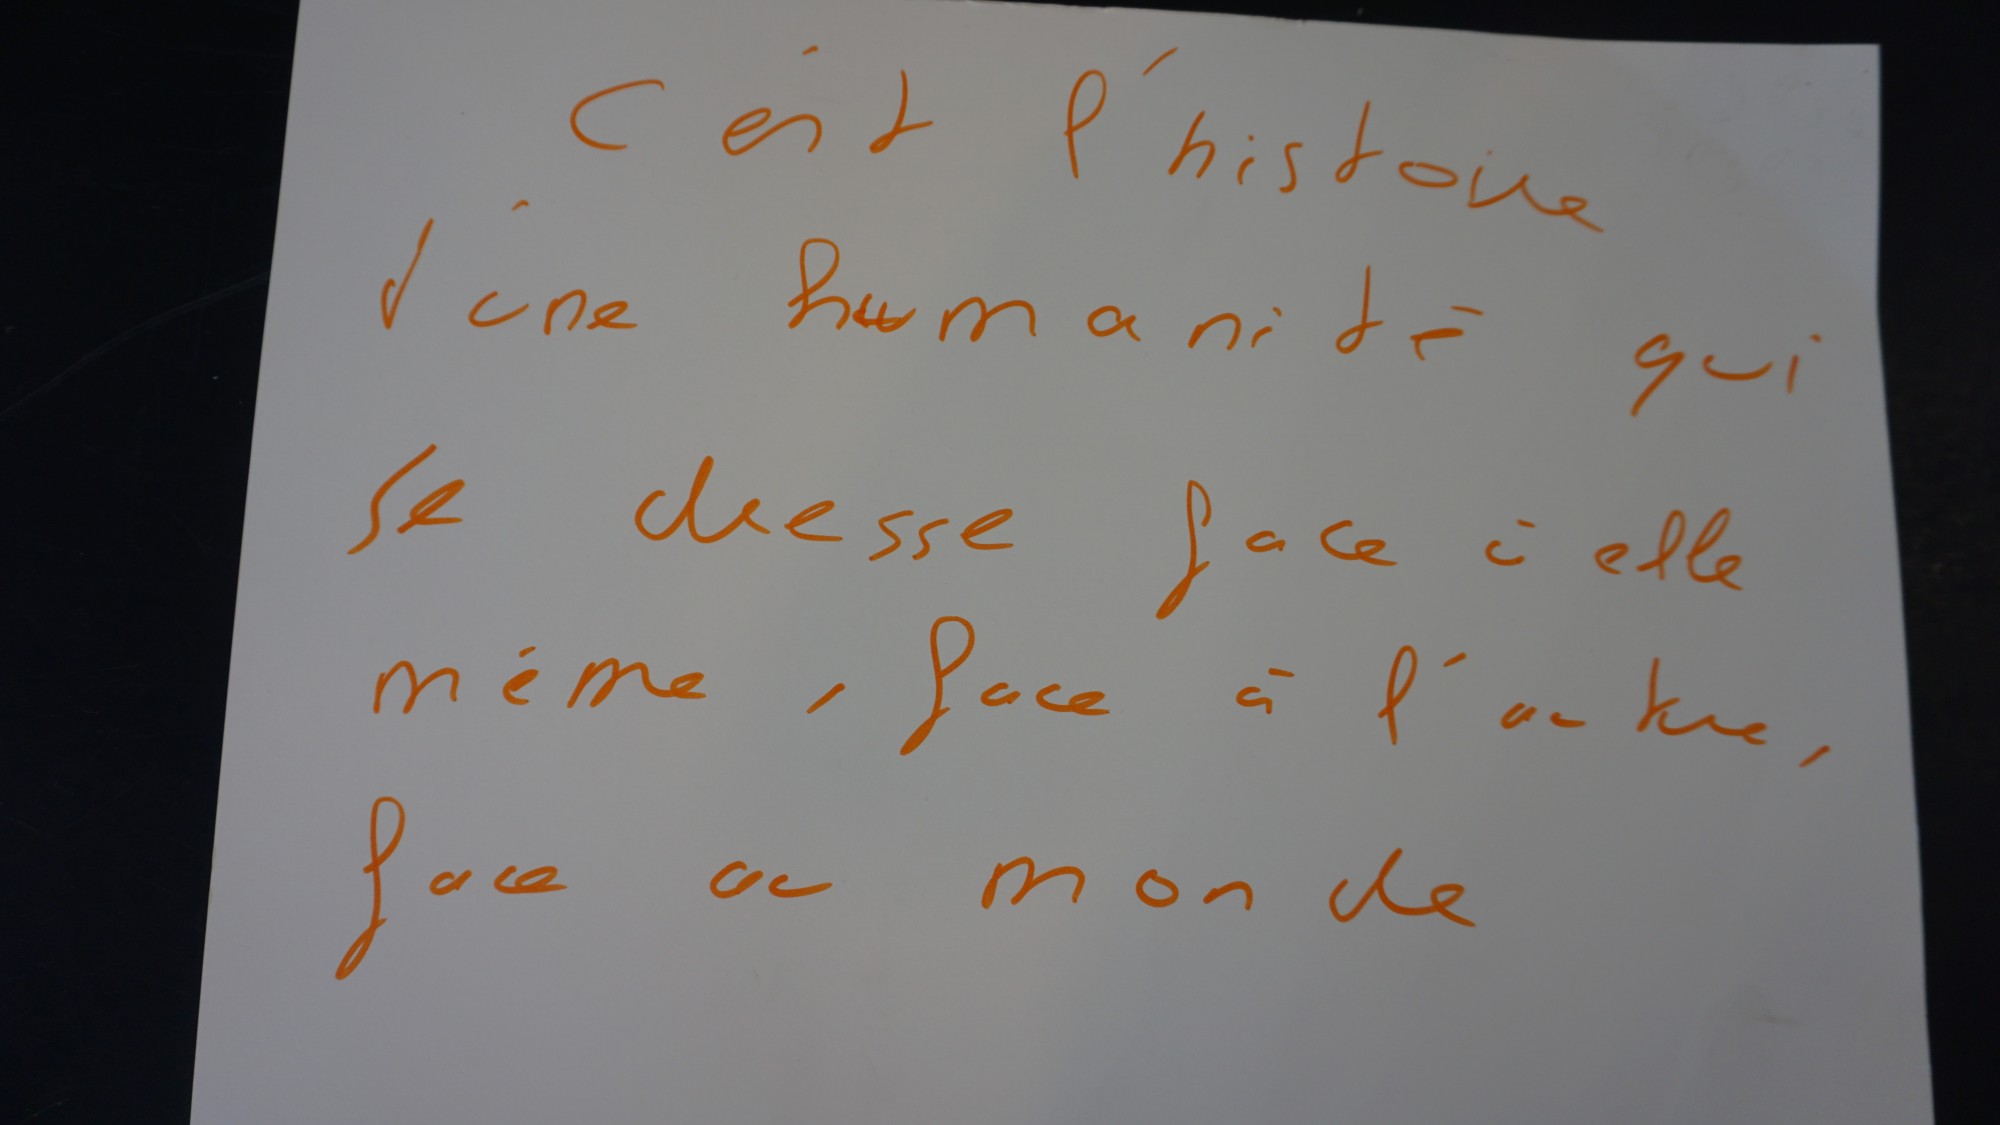 C'est l'histoire
d'une humanité qui
se dresse face à elle
même, face à l'autre,
face au monde